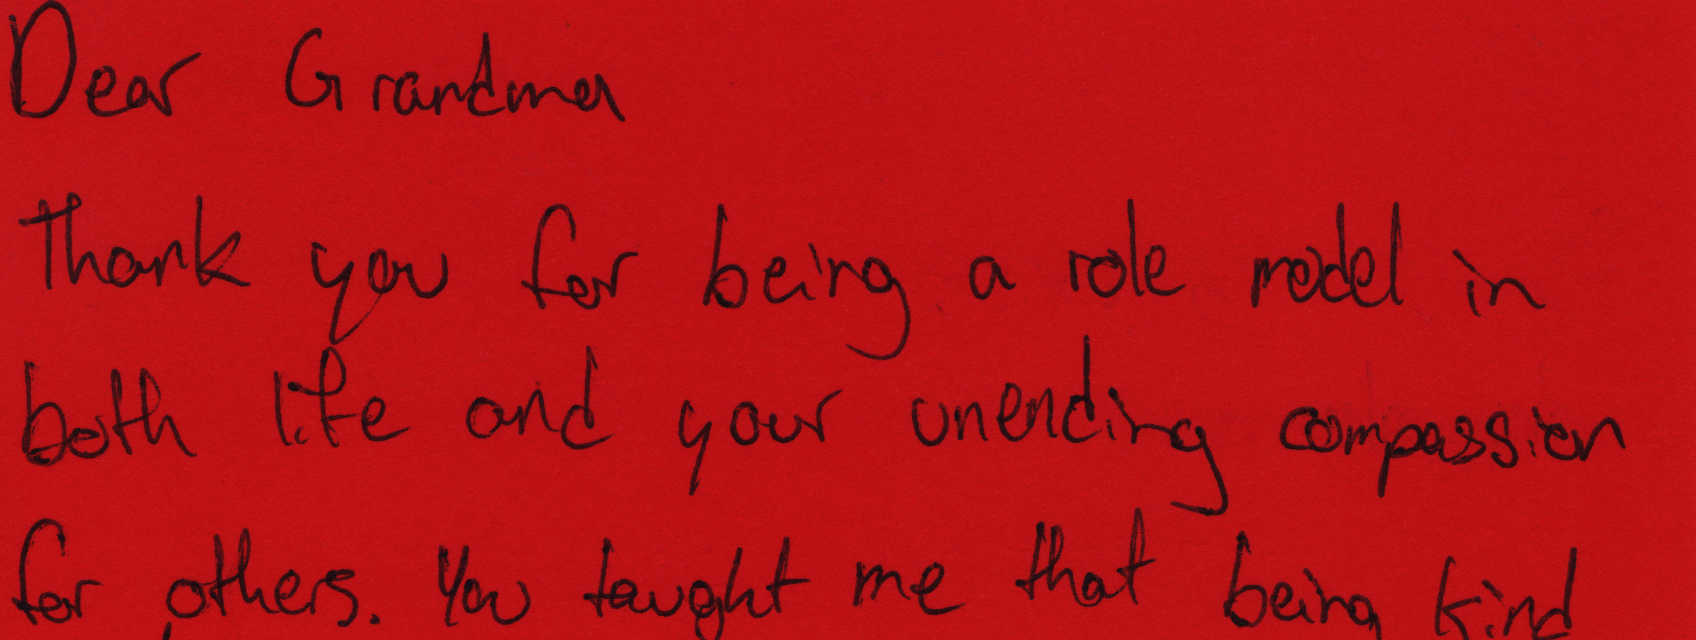 Dear Grandma
Thank you for being a role model in
both life and your unending compassion
for others. You taught me that being kind